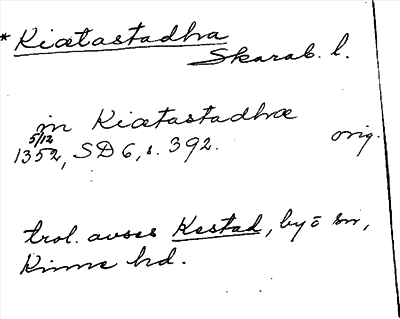 * Kiætastadhra
Skarab. l.
in Kiætastadhræ
5/12
1352, SD 6, s. 392. orig.
trol. avses Kestad, by o sn,
Kinne hd.